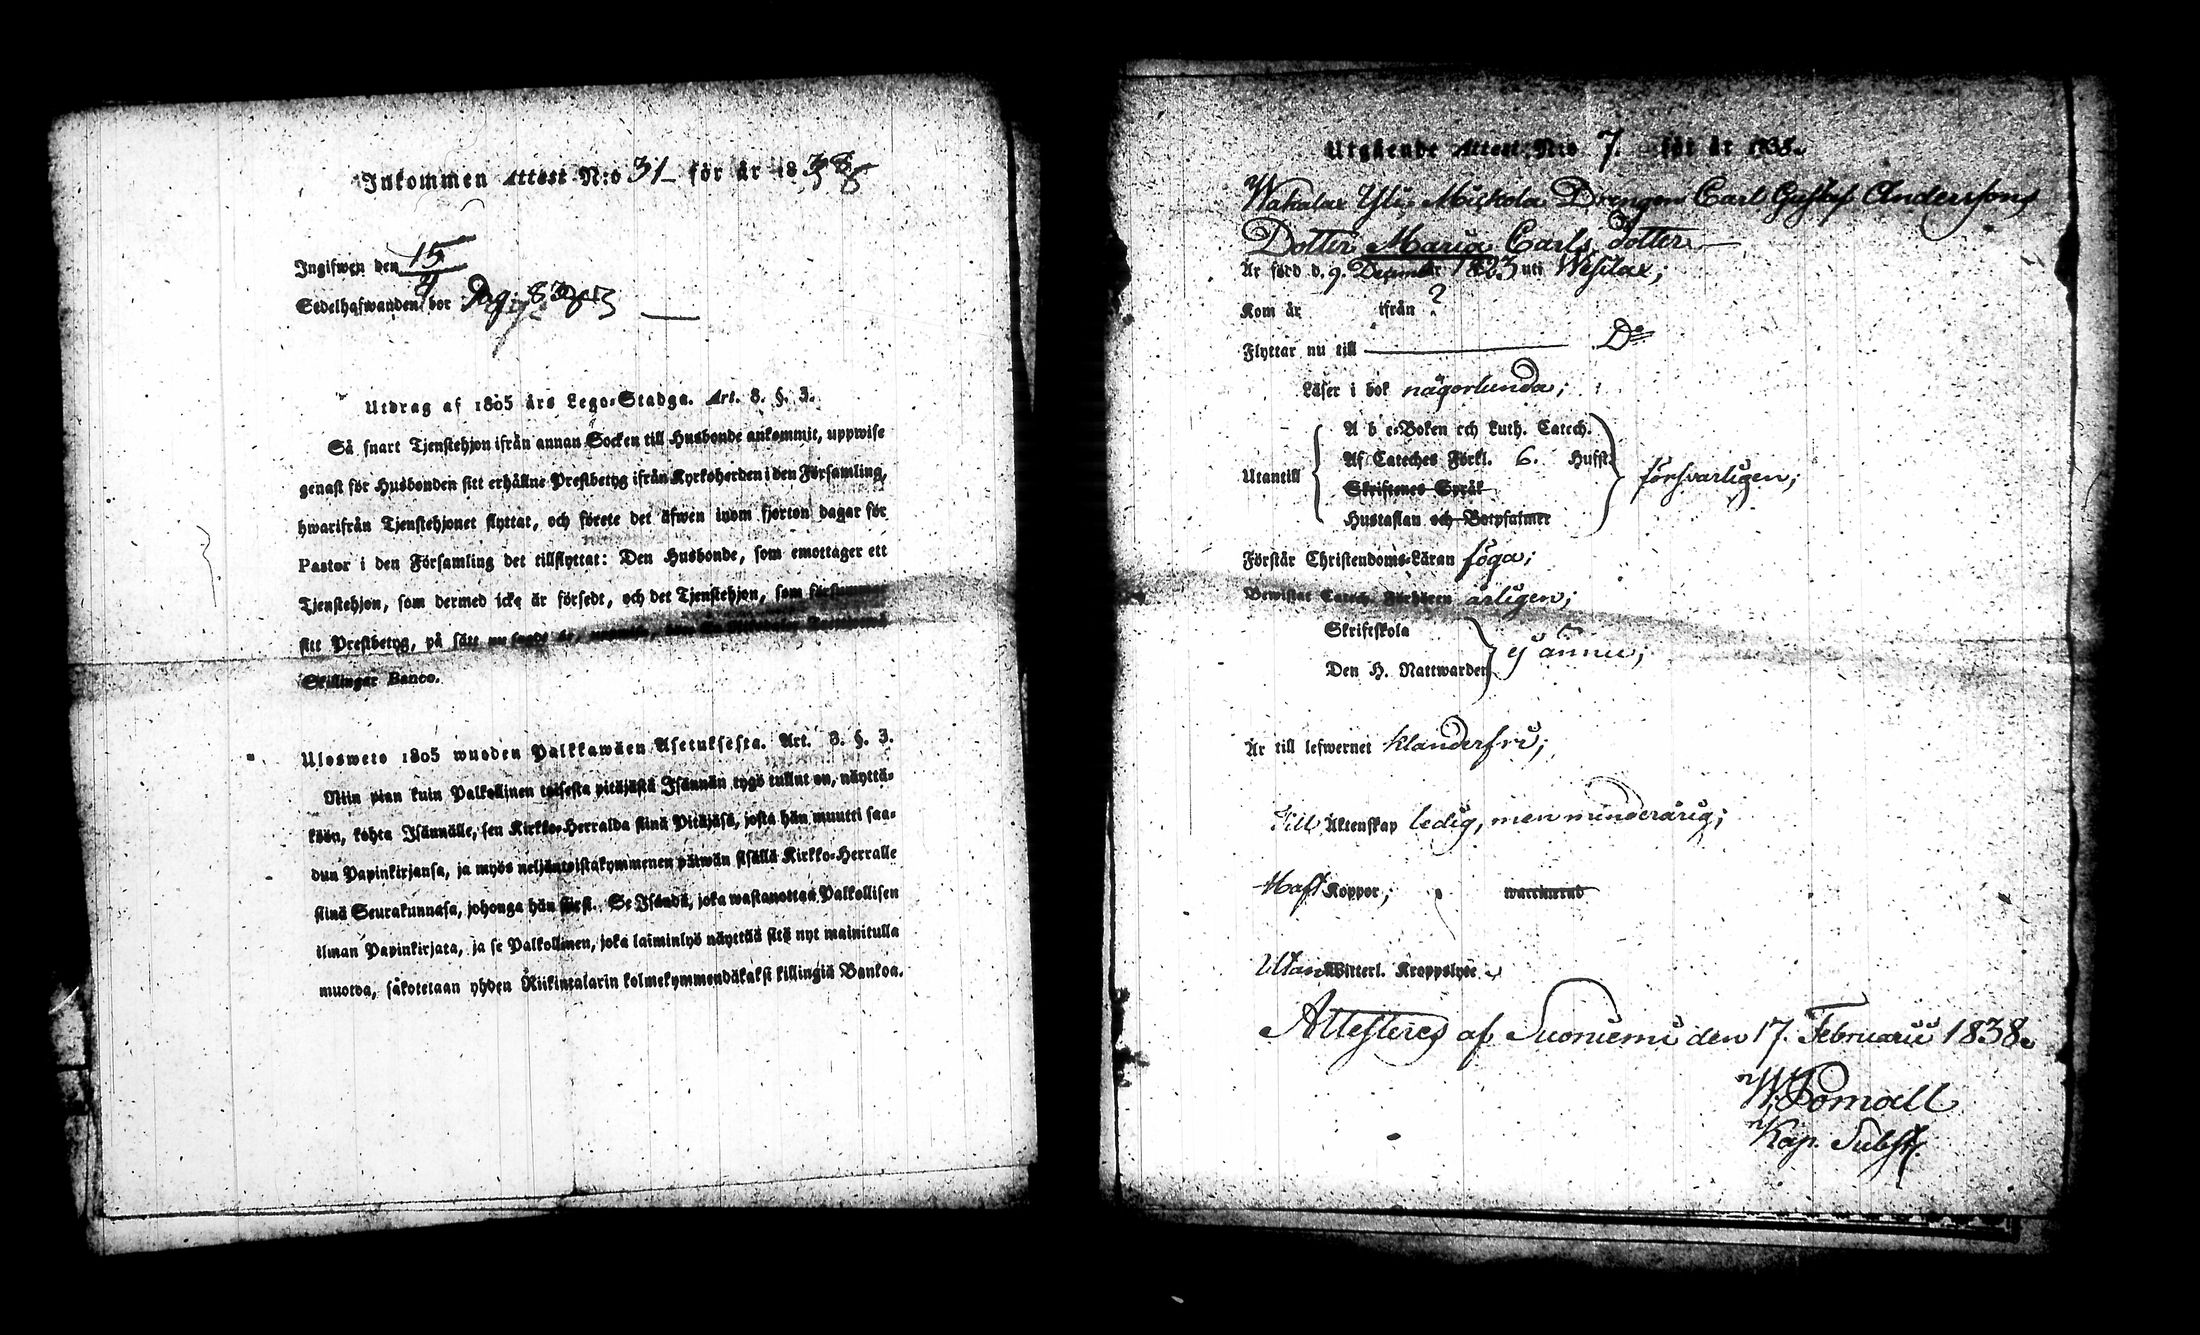 Inkommen Attest N:o 31 för år 1838
Ingifwen den 15/4
Sedelhafwanden bor Pag.
Utdrag af 1805 års Lego-Stadga. Art. 8. §. 3.
Så snart Tjenstehjon ifrån annan Socken till Husbonde ankommit, uppwise
genast för Husbonden sitt erhållne Prestbetyg ifrån Kyrkoherden i den Församling,
hwarifrån Tjenstehjonet flyttat, och förete det äfwen inom fjorton dagar för
Pastor i den Församling det tillflyttat: Den Husbonde, som emottager ett
Tjenstehjon, som dermed icke är försedt, och det Tjenstehjon, som försummar
sitt Prestbetyg, på sätt nu sagdt är,
Skillingar Banco.
Ulosweto 1805 wuoden Palkkawäen Asetuksesta. Art. 8. §. 3.
Niin pian kuin Palkollinen toisesta pitäjästä Isännän tygö tullut on, näyttä-
köön, kohta Isännälle, sen Kirkko-Herralda siinä Pitäjäsä, josta hän muutti saa-
dun Papinkirjansa, ja myös neljäntoistakymmenen päiwän sisällä Kirkko-Herralle
siinä Seurakunnasa, johonga hän siirsi. Se Isändä, joka wastanottaa Palkollisen
ilman Papinkirjata, ja se Palkollinen, joka laiminlyö näyttää sitä nyt mainitulla
muotoa, sakotetaan yhden Riikintalarin kolmekymmendäkaksi killingiä Bankoa.
Utgående Attest N:o 7. för år 1838.
Wakalax Yli-Mickola Drengen Carl Gustaf Anderssons
Dotter Maria Carls dotter
Är född d. 9. December 1823 uti Wesilax;
Kom år ifrån ?
Flyttar nu till D:o
Läser i bok någorlunda;
A b c-Boken och Luth. Catech.
Utantill Af Cateches Förkl. 6. Hufst. försvarligen;
Skriftenes Språk
Hustaflan och Botpsalmer
Förstår Christendoms-Läran föga;
Bewistat Catech. Förhören årligen;
Skriftskola
Den H. Nattwarden ej ännu;
Är till lefwernet klanderfri;
Till Äktenskap ledig, men minderårig;
Haft Koppor; waccinerad
Utan Witterl. Kroppslyte
Attesteres af Suoniemi den 17. Februarii 1838.
Kap. Subst.